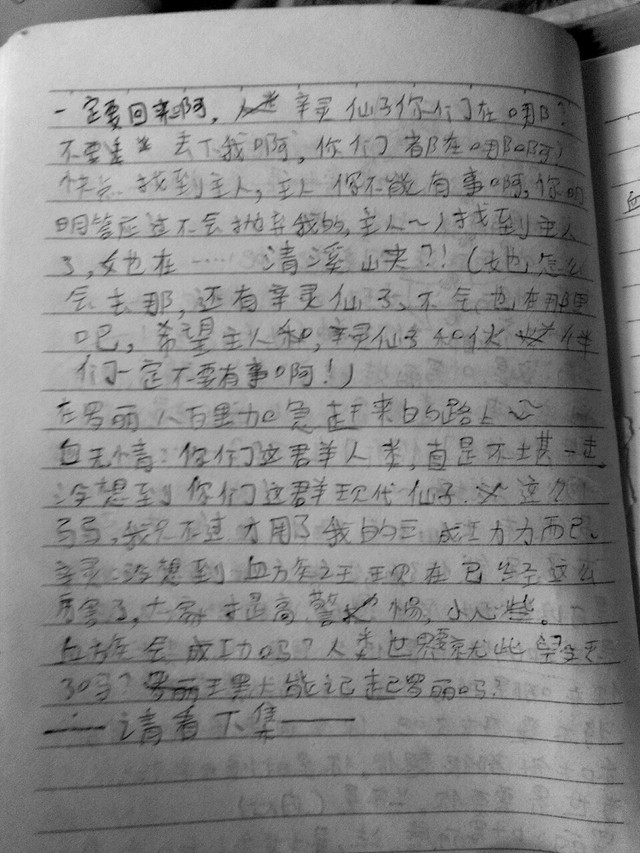 一定要回来啊, 辛灵仙子你们在哪?
不要丢下我啊,你们都在哪啊!
快点找到主人,主人你不能有事啊,你明
明答应过不会抛弃我的,主人~)找到主人
了,她也在……清溪山夹?!(她怎么
会去那,还有辛灵仙子,不会也在那里
吧,希望主人和,辛灵仙子和伙伴
们一定不要有事啊!)
在罗丽八百里加急赶来的路上~
血无情:你们这君羊人类,直是不堪一击
没想到你们这群现代仙子 这么
弱,我只不过才用了我的三成功力而已。
辛灵:没想到血族之王现在已经这么
厉害了,大家提高警惕,小心些。
血族会成功吗?人类世界就此
了吗?罗丽王黑犬能记起罗丽吗?
——请看下集——
血